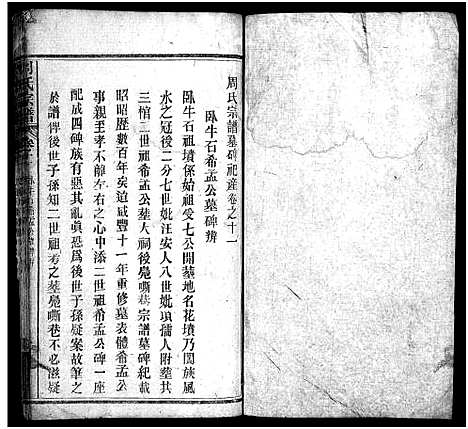 周氏宗譜墓碑祀產卷之十一
臥牛石希孟公墓碑辨
臥牛石祖墳係始祖受七公開塋地名花墳乃閤族風
水之冠後二分七世妣汪安人八世妣項孺人附塋共
三棺二世祖希孟公塋入祠後凫嘶巷宗譜墓碑紀載
昭昭歷數百年矣迨咸豐十一年重修墓表體希孟公
事親至孝不離左右之心中添二世祖希孟公碑一座
配成四碑族有惡其亂真恐為後世子孫疑案故筆之
於譜俾後世子孫知二世祖考之塋凫嘶巷不必滋疑